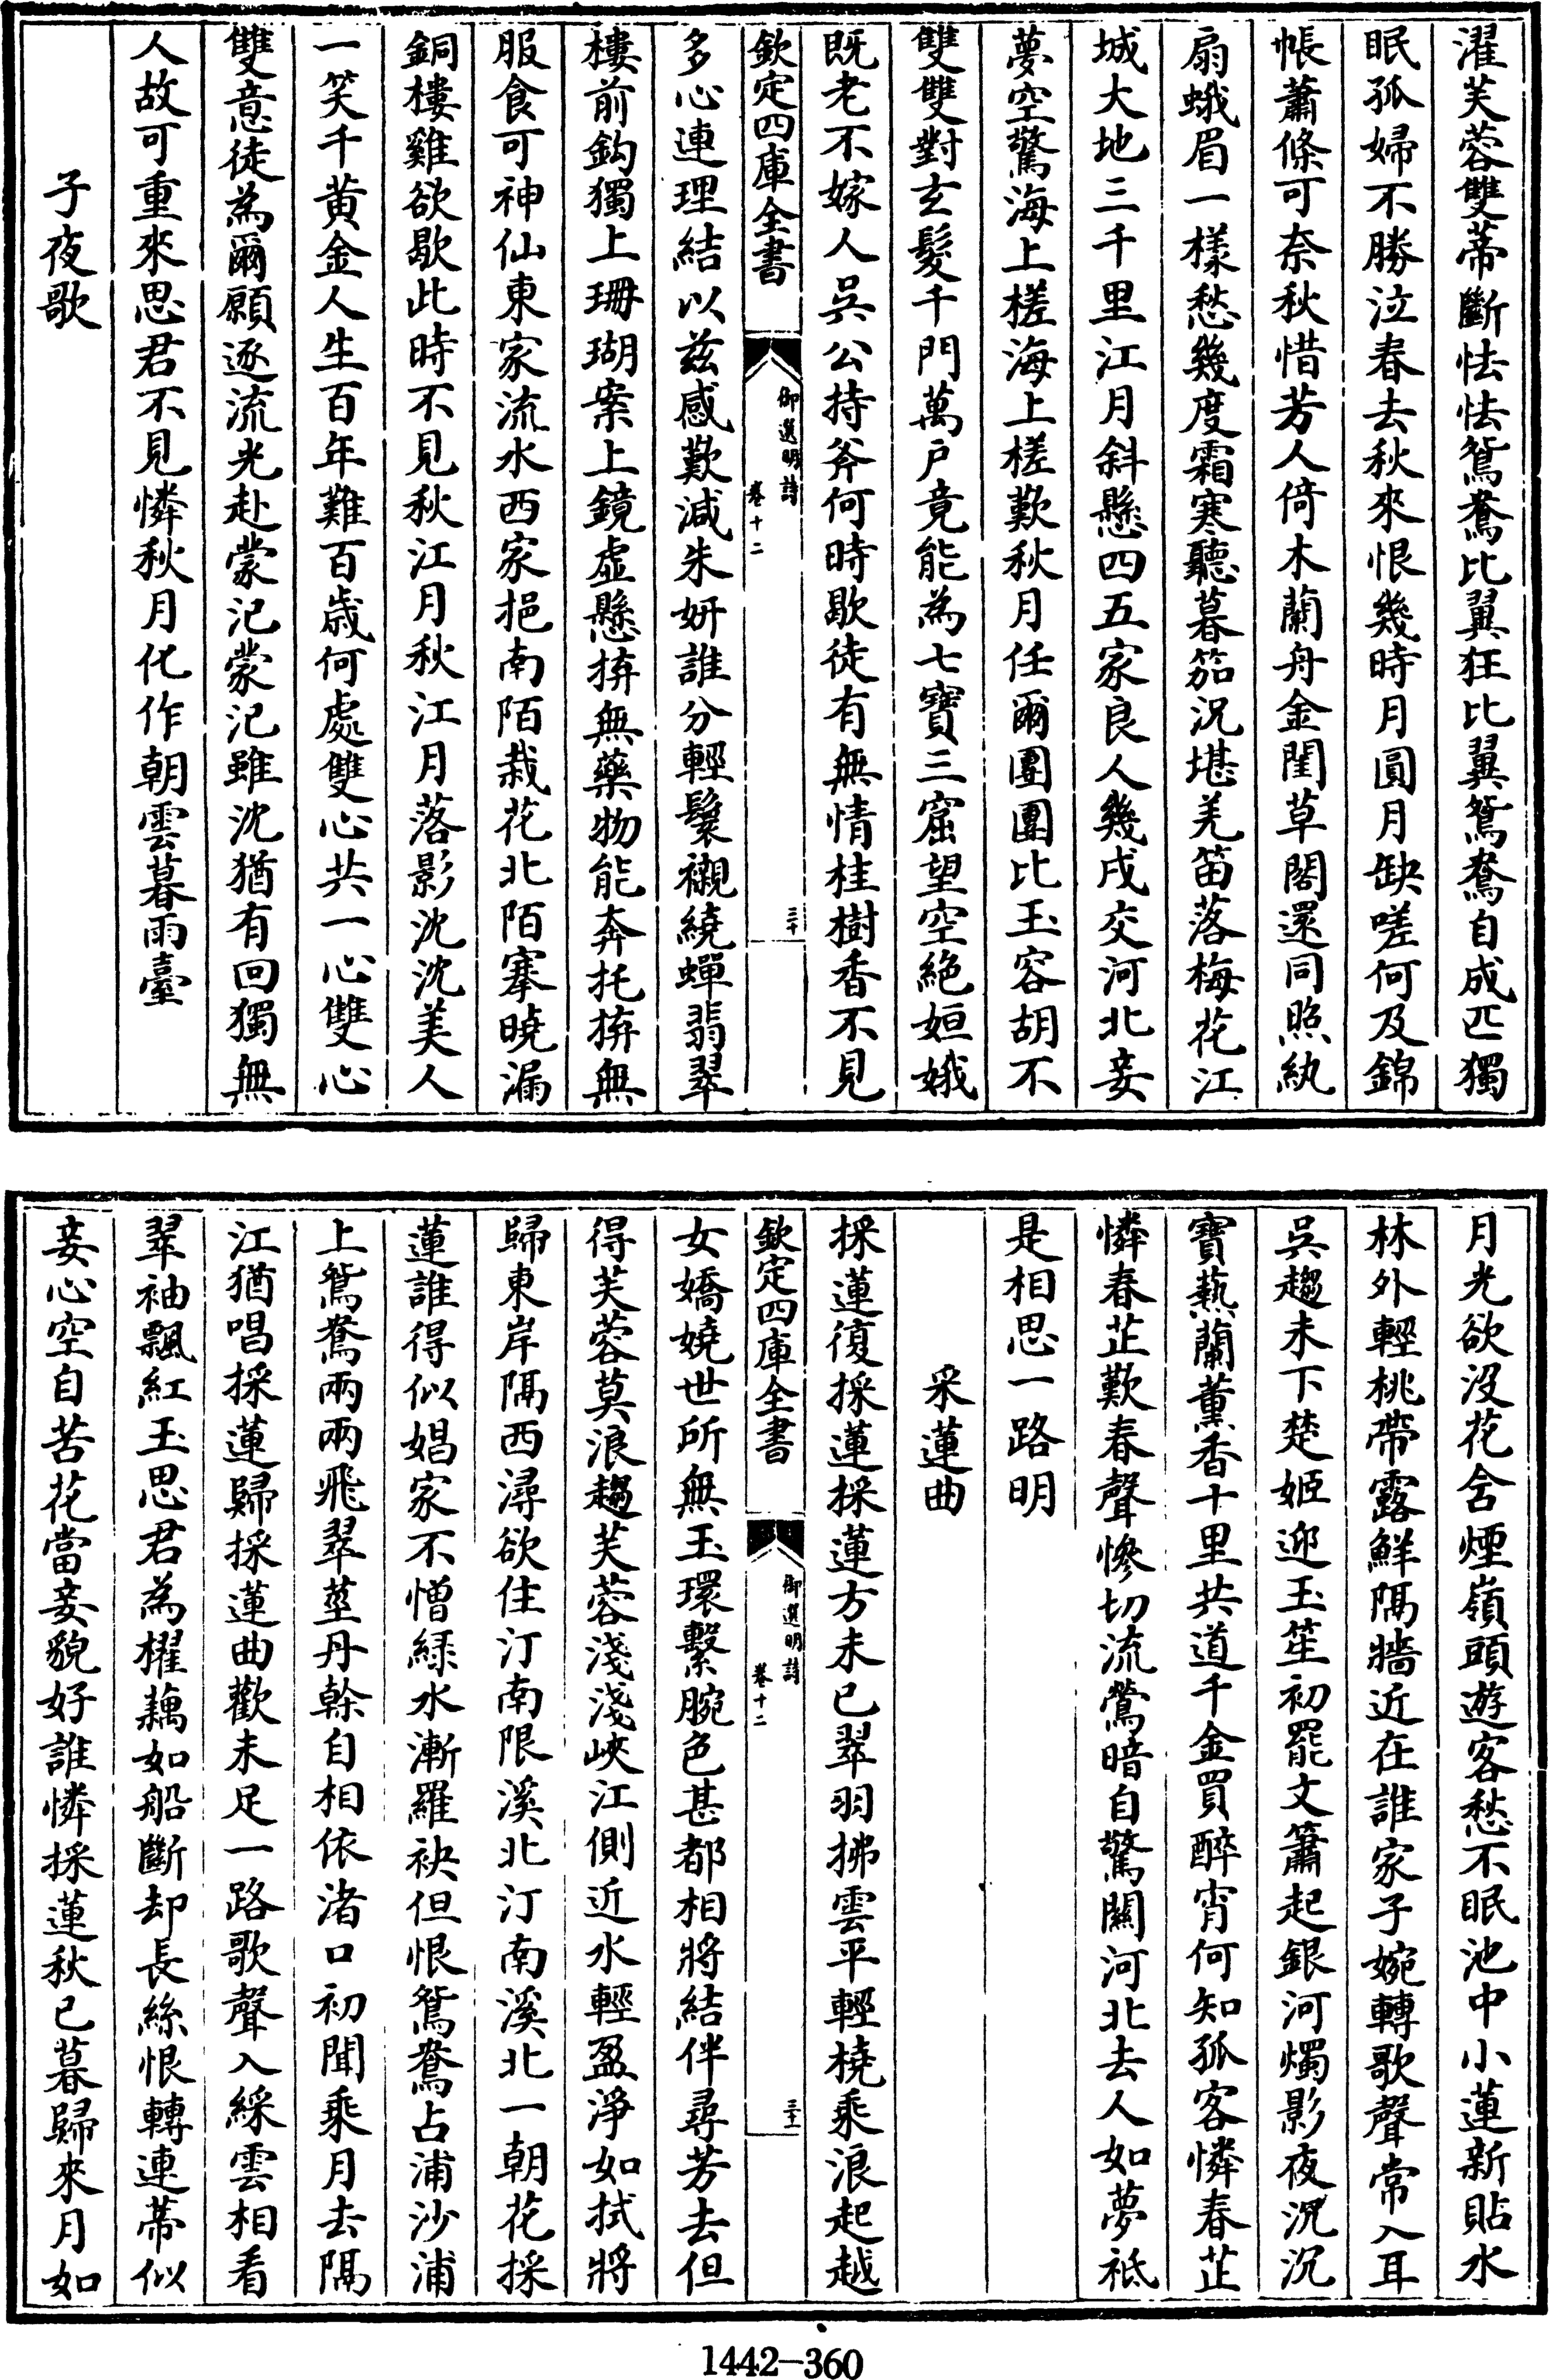 濯芙蓉雙蒂斷怯怯鴛鴦比翼狂比翼鴛鴦自成匹獨
眠孤婦不勝泣春去秋來恨幾時月圓月缺嗟何及錦
帳蕭條可奈秋惜芳人倚木蘭舟金閨草閣還同照紈
扇蛾眉一樣愁幾度霜寒聽暮笳況堪羌笛落梅花江
城大地三千里江月斜懸四五家良人幾戍交河北妾
夢空驚海上槎海上槎歎秋月任爾團團比玉容胡不
雙雙對玄髮千門萬戶竟能為七寶三窟望空絕姮娥
既老不嫁人吳公持斧何時歇徒有無情桂樹香不見
欽定四庫全書
御選明詩
卷十二
三十
多心連理結以兹感歎減朱妍誰分輕鬟襯繞蟬翡翠
樓前鈎獨上珊瑚案上鏡虛懸拚無藥物能奔托拚無
服食可神仙東家流水西家挹南陌栽花北陌搴曉漏
銅樓雞欲歇此時不見秋江月秋江月落影沈沈美人
一笑千黃金人生百年難百歲何處雙心共一心雙心
雙意徒為爾願逐流光赴蒙汜蒙汜雖沈猶有回獨無
人故可重來思君不見憐秋月化作朝雲暮雨臺
子夜歌
月光欲沒花含煙嶺頭遊客愁不眠池中小蓮新貼水
林外輕桃帶露鮮隔牆近在誰家子婉轉歌聲常入耳
吳趨未下楚姬迎玉笙初罷文簫起銀河燭影夜沉沉
寶爇蘭薰香十里共道千金買醉宵何知孤客憐春芷
憐春芷歎春聲慘切流鶯暗自驚關河北去人如夢祗
是相思一路明
采蓮曲
採蓮復採蓮採蓮方未已翠羽拂雲平輕橈乘浪起越
欽定四庫全書
御選明詩
卷十二
三十一
女嬌嬈世所無玉環繫腕色甚都相將結伴尋芳去但
得芙蓉莫浪趨芙蓉淺淺峽江側近水輕盈淨如拭將
歸東岸隔西潯欲住汀南限溪北汀南溪北一朝花採
蓮誰得似娼家不憎緑水漸羅袂但恨鴛鴦占浦沙浦
上鴛鴦兩兩飛翠莖丹榦自相依渚口初聞乘月去隔
江猶唱採蓮歸採蓮曲歡未足一路歌聲入綵雲相看
翠袖飄紅玉思君為櫂藕如船斷却長絲恨轉連蒂似
妾心空自苦花當妾貌好誰憐採蓮秋已暮歸來月如
1442—360